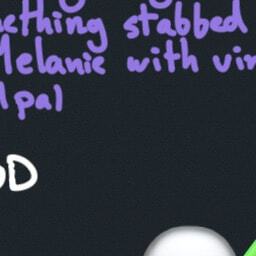 ething stabbed
Melanie with vin
pal
OD